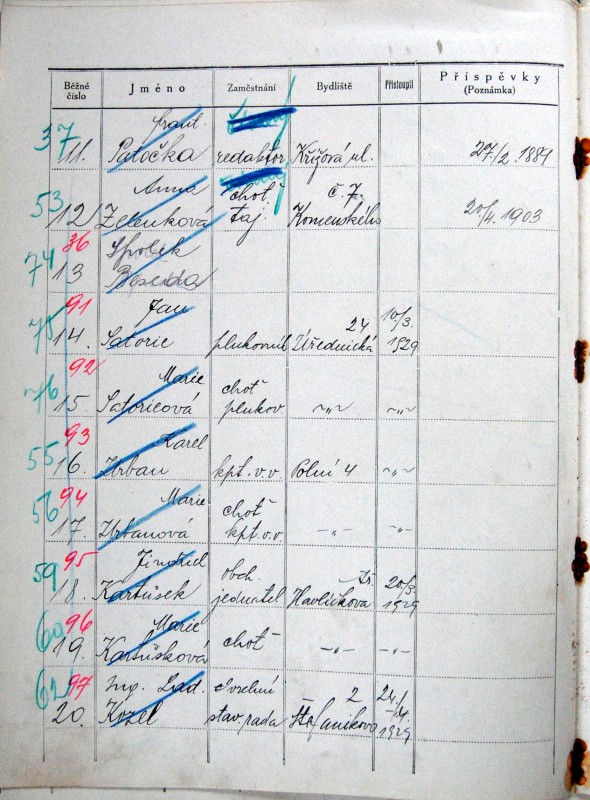 Běžné číslo Jméno Zaměstnání Bydliště Přistoupil Příspěvky (Poznámka)
37 Frant.
11. Patočka redaktor Křížová ul. 27/2. 1881
53 Anna choť č. 7.
12 Zelenková taj. Komenského 20/4. 1903
36 Spolek
74 13 Beseda
91 Jan 24 10/3.
75 14. Satorie plukovník Úřednická 1929
92 Marie choť
76 15 Satorieová plukov. -„- -„-
93 Karel
55 16. Urban kpt. v.v. Polní 4 -„-
94 Marie choť
56 17. Urbanová kpt. v.v. -„- -„-
95 Jindřich obch. 20/3.
59 18. Kartúsek jednatel Havlíčkova 1929
96 Marie
60 19. Kartúsková choť -„- -„-
97 Ing. Lad. vrchní 2 24/
62 20. Kozel stav. rada Štefanikova 4. 1929